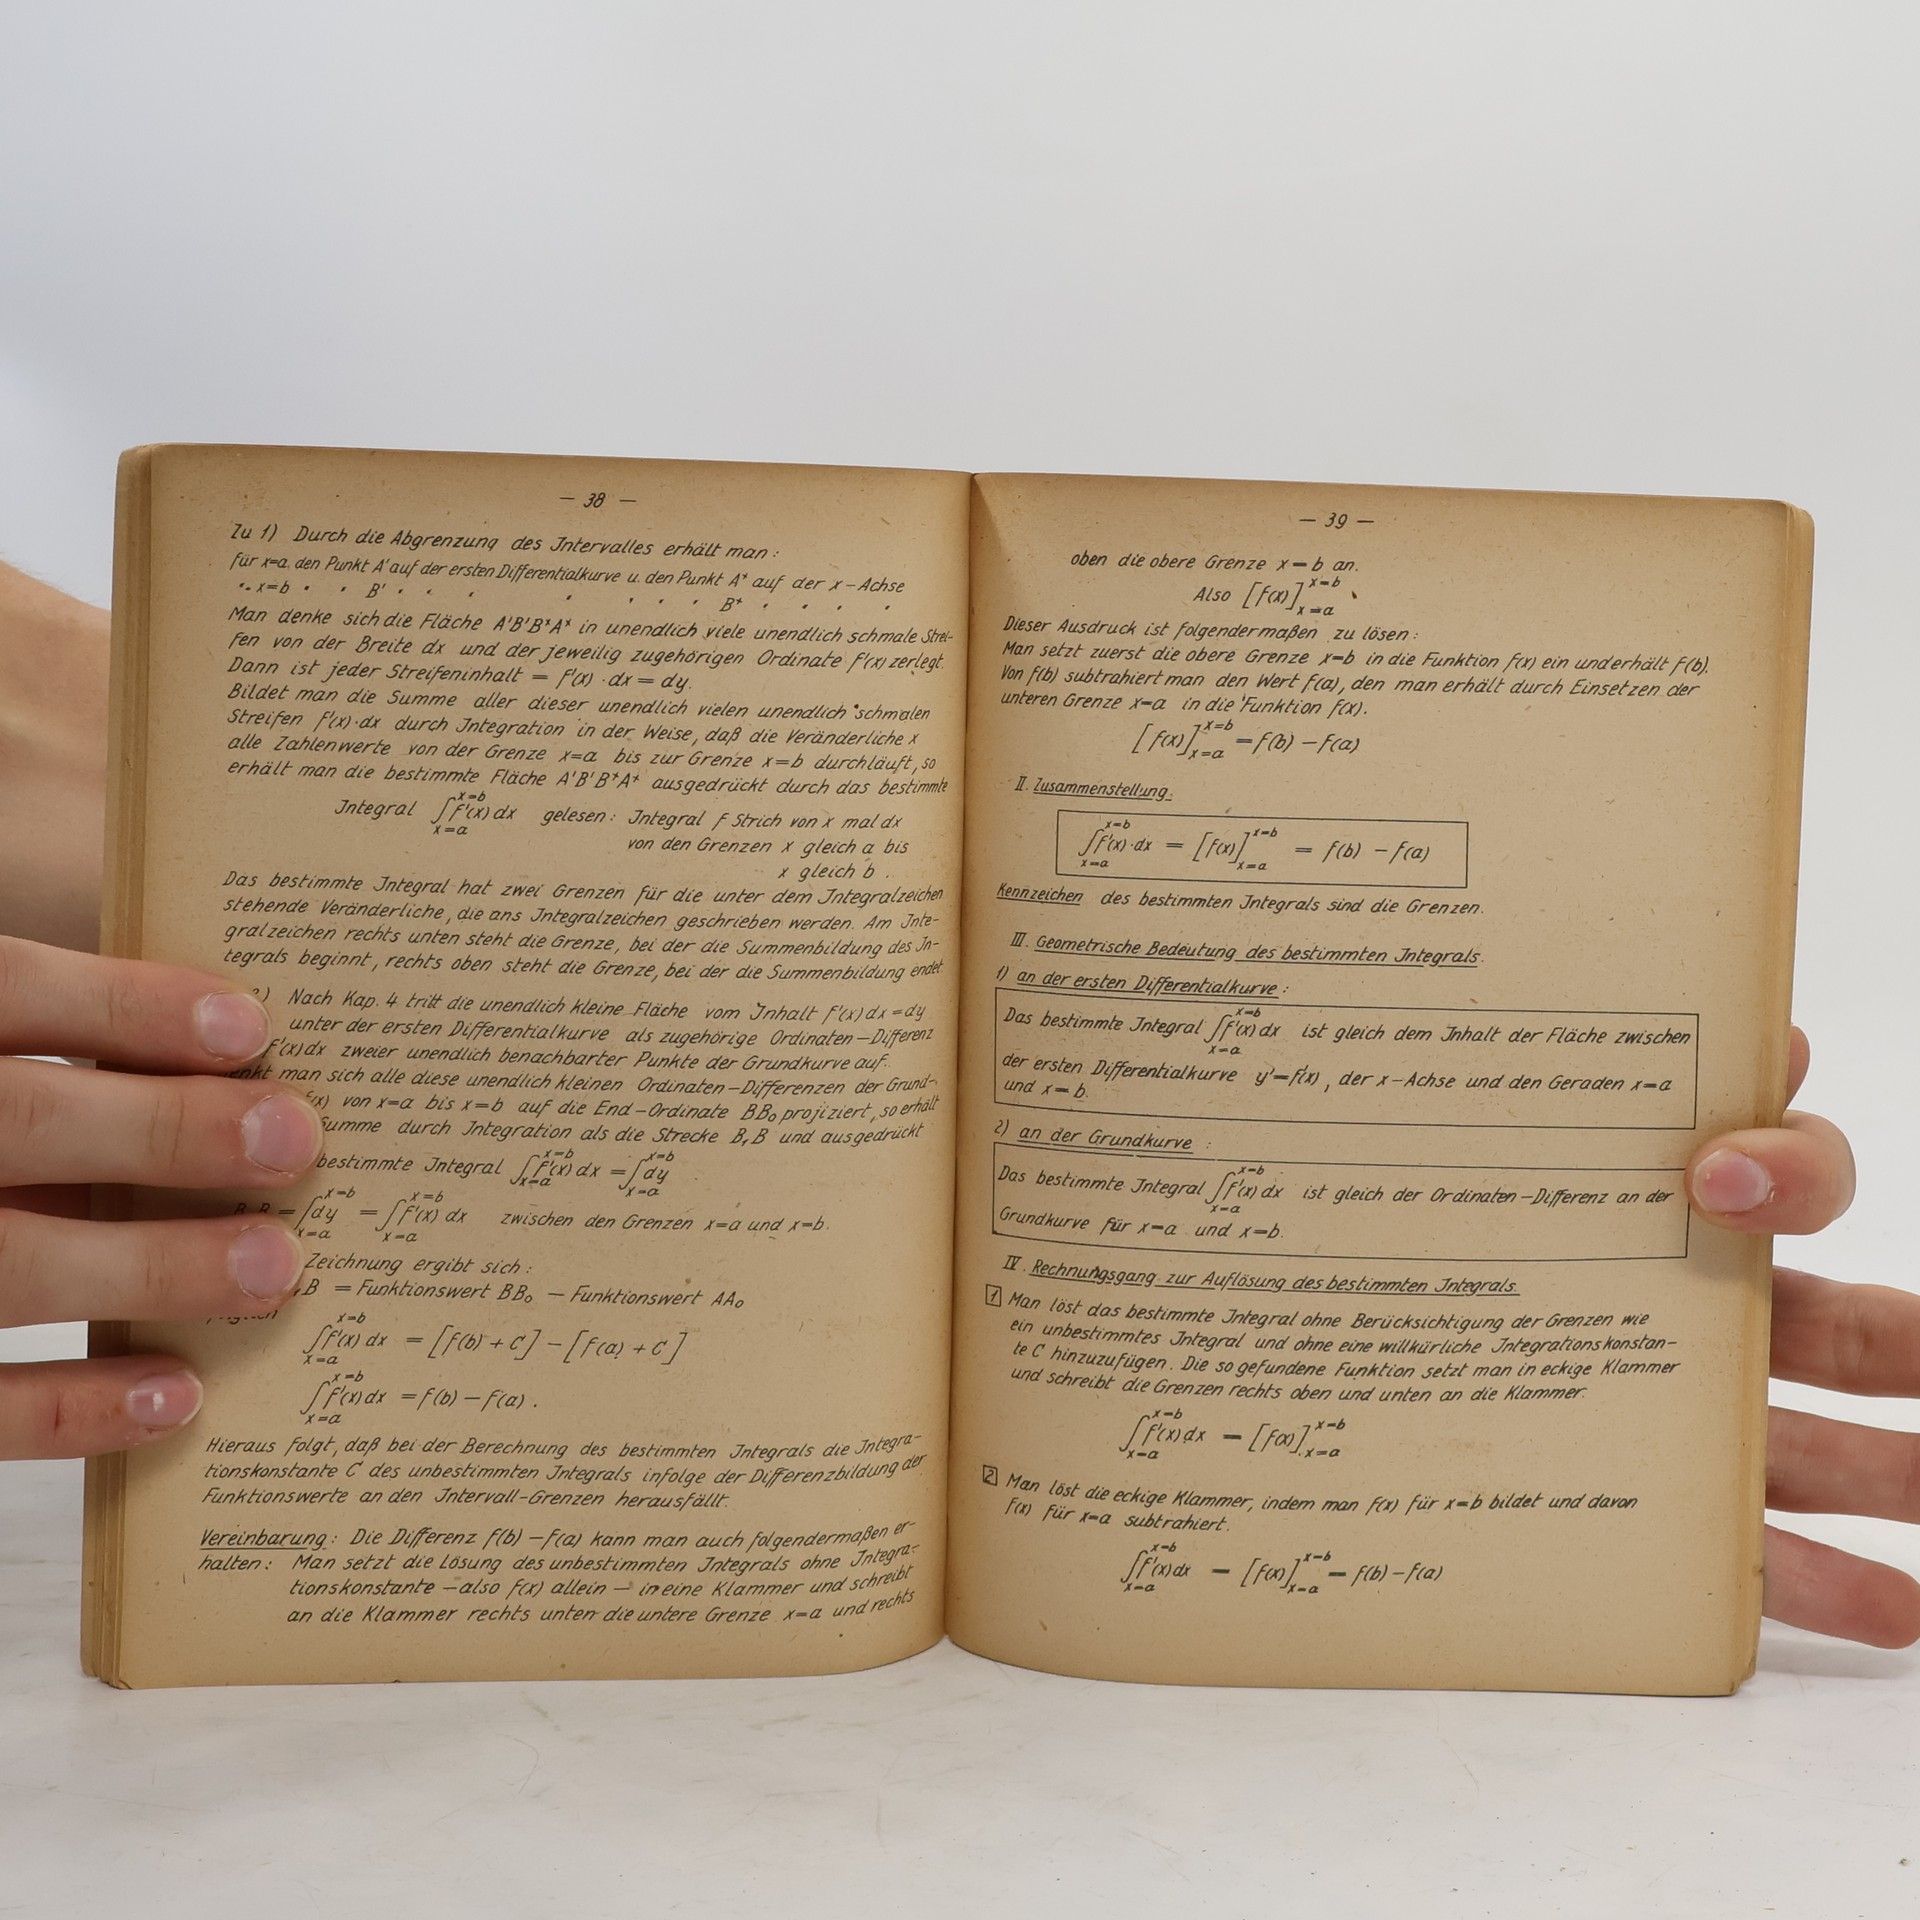 — 38 —
Zu 1) Durch die Abgrenzung des Intervalles erhält man:
für x=a den Punkt A' auf der ersten Differentialkurve u. den Punkt A* auf der x-Achse
" x=b " " B' " " " " " " " B* " " " "
Man denke sich die Fläche A'B'B*A* in unendlich viele unendlich schmale Strei-
fen von der Breite dx und der jeweilig zugehörigen Ordinate f'(x) zerlegt.
Dann ist jeder Streifeninhalt = f'(x)·dx = dy.
Bildet man die Summe aller dieser unendlich vielen unendlich schmalen
Streifen f'(x)·dx durch Integration in der Weise, daß die Veränderliche x
alle Zahlenwerte von der Grenze x=a bis zur Grenze x=b durchläuft, so
erhält man die bestimmte Fläche A'B'B*A* ausgedrückt durch das bestimmte
Integral ∫_{x=a}^{x=b} f'(x) dx gelesen: Integral f Strich von x mal dx
von den Grenzen x gleich a bis
x gleich b.
Das bestimmte Integral hat zwei Grenzen für die unter dem Integralzeichen
stehende Veränderliche, die ans Integralzeichen geschrieben werden. Am Inte-
gralzeichen rechts unten steht die Grenze, bei der die Summenbildung des In-
tegrals beginnt, rechts oben steht die Grenze, bei der die Summenbildung endet
) Nach Kap. 4 tritt die unendlich kleine Fläche vom Inhalt f'(x)dx = dy
unter der ersten Differentialkurve als zugehörige Ordinaten-Differenz
f'(x)dx zweier unendlich benachbarter Punkte der Grundkurve auf.
man sich alle diese unendlich kleinen Ordinaten-Differenzen der Grund-
f(x) von x=a bis x=b auf die End-Ordinate BB₀ projiziert, so erhält
Summe durch Integration als die Strecke B₁B und ausgedrückt
bestimmte Integral ∫_{x=a}^{x=b} f'(x) dx = ∫_{x=a}^{x=b} dy
= ∫_{x=a}^{x=b} dy = ∫_{x=a}^{x=b} f'(x) dx zwischen den Grenzen x=a und x=b.
Zeichnung ergibt sich:
B = Funktionswert BB₀ — Funktionswert AA₀
∫_{x=a}^{x=b} f'(x) dx = [f(b) + C] − [f(a) + C]
∫_{x=a}^{x=b} f'(x) dx = f(b) − f(a).
Hieraus folgt, daß bei der Berechnung des bestimmten Integrals die Integra-
tionskonstante C des unbestimmten Integrals infolge der Differenzbildung der
Funktionswerte an den Intervall-Grenzen herausfällt.
Vereinbarung: Die Differenz f(b) − f(a) kann man auch folgendermaßen er-
halten: Man setzt die Lösung des unbestimmten Integrals ohne Integra-
tionskonstante — also f(x) allein — in eine Klammer und schreibt
an die Klammer rechts unten die untere Grenze x=a und rechts
— 39 —
oben die obere Grenze x=b an.
Also [f(x)]_{x=a}^{x=b}
Dieser Ausdruck ist folgendermaßen zu lösen:
Man setzt zuerst die obere Grenze x=b in die Funktion f(x) ein und erhält f(b).
Von f(b) subtrahiert man den Wert f(a), den man erhält durch Einsetzen der
unteren Grenze x=a in die Funktion f(x).
[f(x)]_{x=a}^{x=b} = f(b) − f(a)
II. Zusammenstellung:
∫_{x=a}^{x=b} f'(x)·dx = [f(x)]_{x=a}^{x=b} = f(b) − f(a)
Kennzeichen des bestimmten Integrals sind die Grenzen.
III. Geometrische Bedeutung des bestimmten Integrals.
1) an der ersten Differentialkurve:
Das bestimmte Integral ∫_{x=a}^{x=b} f'(x) dx ist gleich dem Inhalt der Fläche zwischen
der ersten Differentialkurve y'=f'(x), der x-Achse und den Geraden x=a
und x=b.
2) an der Grundkurve:
Das bestimmte Integral ∫_{x=a}^{x=b} f'(x) dx ist gleich der Ordinaten-Differenz an der
Grundkurve für x=a und x=b.
IV. Rechnungsgang zur Auflösung des bestimmten Integrals.
1 Man löst das bestimmte Integral ohne Berücksichtigung der Grenzen wie
ein unbestimmtes Integral und ohne eine willkürliche Integrationskonstan-
te C hinzuzufügen. Die so gefundene Funktion setzt man in eckige Klammer
und schreibt die Grenzen rechts oben und unten an die Klammer.
∫_{x=a}^{x=b} f'(x) dx = [f(x)]_{x=a}^{x=b}
2 Man löst die eckige Klammer, indem man f(x) für x=b bildet und davon
f(x) für x=a subtrahiert.
∫_{x=a}^{x=b} f'(x) dx = [f(x)]_{x=a}^{x=b} = f(b) − f(a)